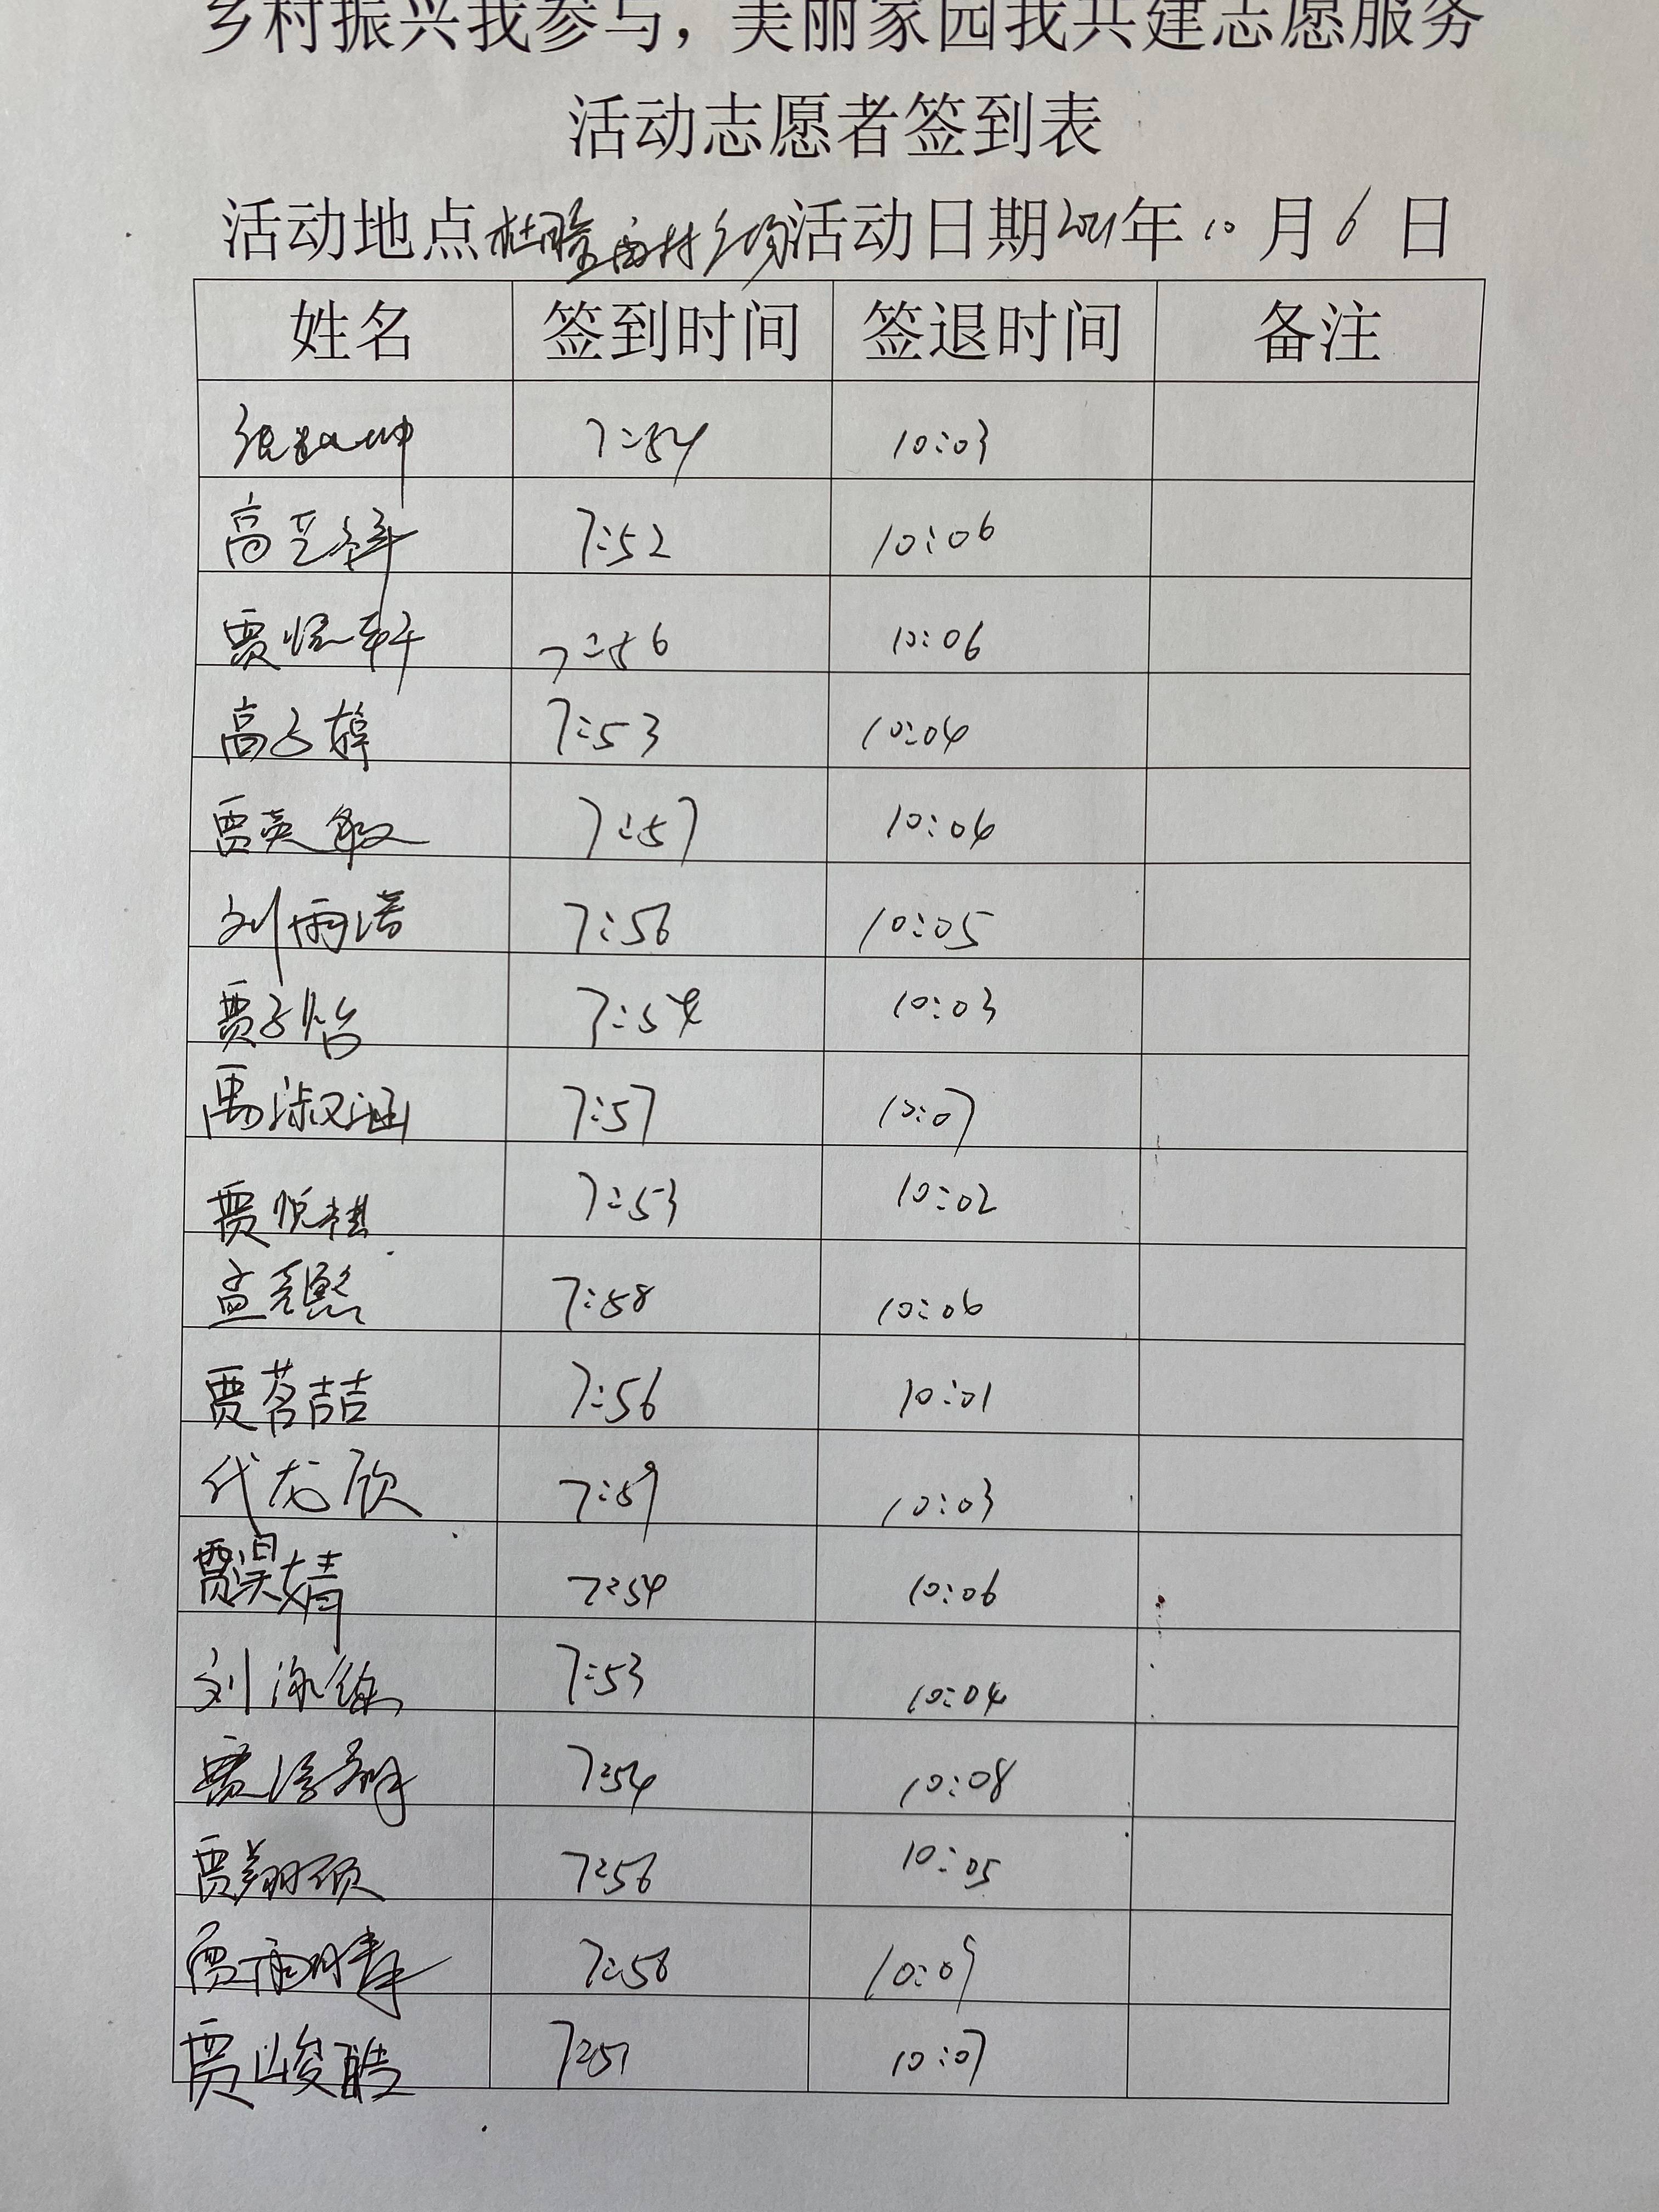 乡村振兴我参与，美丽家园我共建志愿服务
活动志愿者签到表
活动地点 活动日期2021年10月6日
姓名 签到时间 签退时间 备注
7:54 10:03
高艺祥 7:52 10:06
贾 轩 7:56 10:06
高子婷 7:53 10:04
贾英敏 7:57 10:04
刘雨诺 7:56 10:05
贾子怡 7:54 10:03
禹淑涵 7:57 10:07
贾悦祺 7:53 10:02
孟 熙 7:58 10:06
贾茗喆 7:56 10:01
代龙欣 7:59 10:03
贾淏婧 7:54 10:06
刘 7:53 10:04
贾 7:54 10:08
贾翔硕 7:56 10:05
贾雨 7:58 10:09
贾峻皓 7:51 10:07